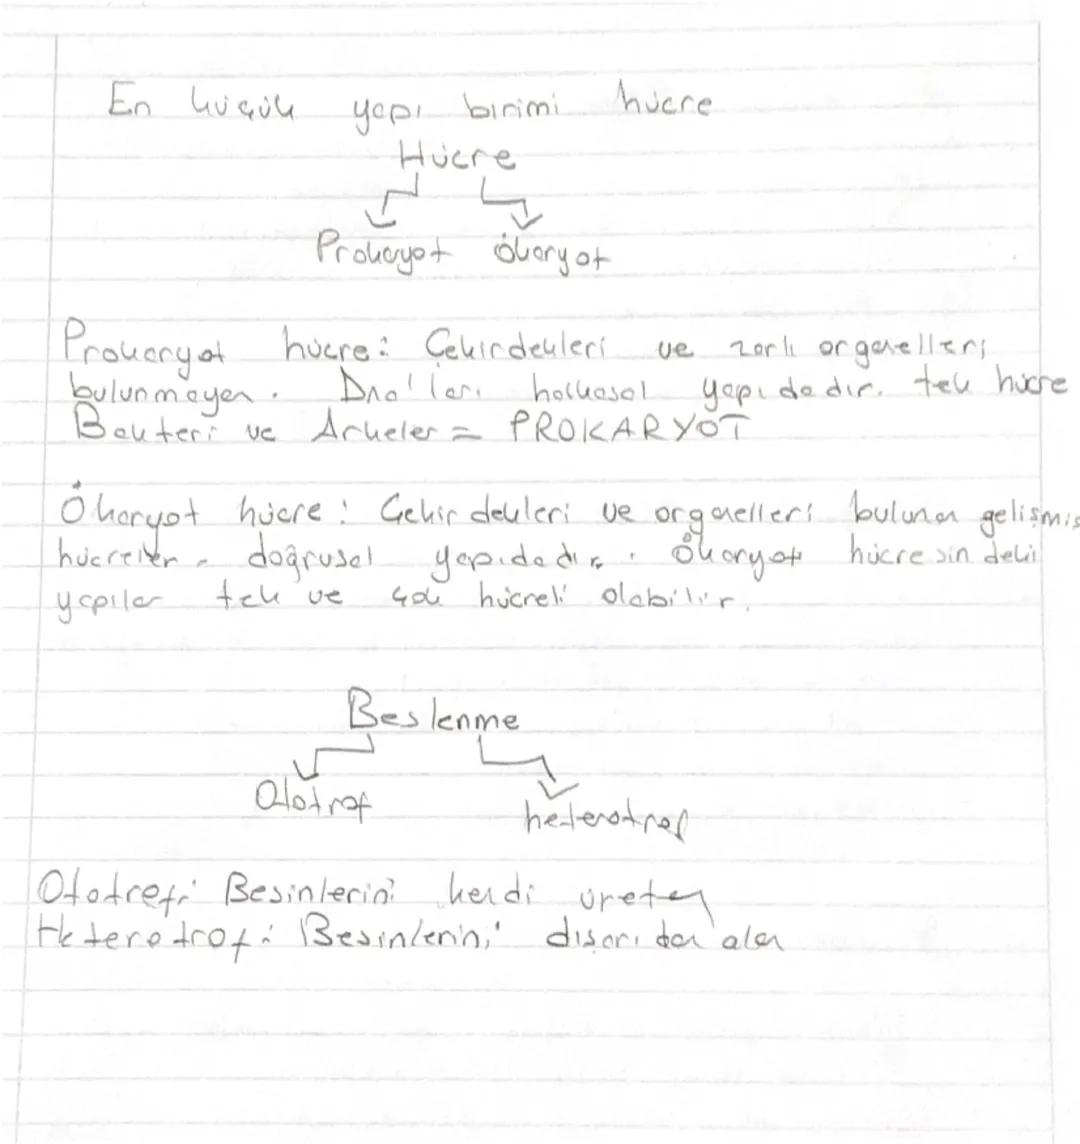 En küçük yapı birimi hücre
Hücre
Prokayot ökaryot
Prokaryot hücre: Çekirdekleri ve zarlı organelleri
bulunmayan. Dna'ları halkasal yapıdadır. tek hücre
Bakteri ve Arkeler = PROKARYOT
Ökaryot hücre: Çekirdekleri ve organelleri bulunan gelişmiş
hücreler. doğrusal yapıdadır. Ökaryot hücresindeki
yapılar tek ve çok hücreli olabilir.
Beslenme
Ototrof heterotrof
Ototrof: Besinlerini kendi üreten
Heterotrof: Besinlerini dışarıdan alan